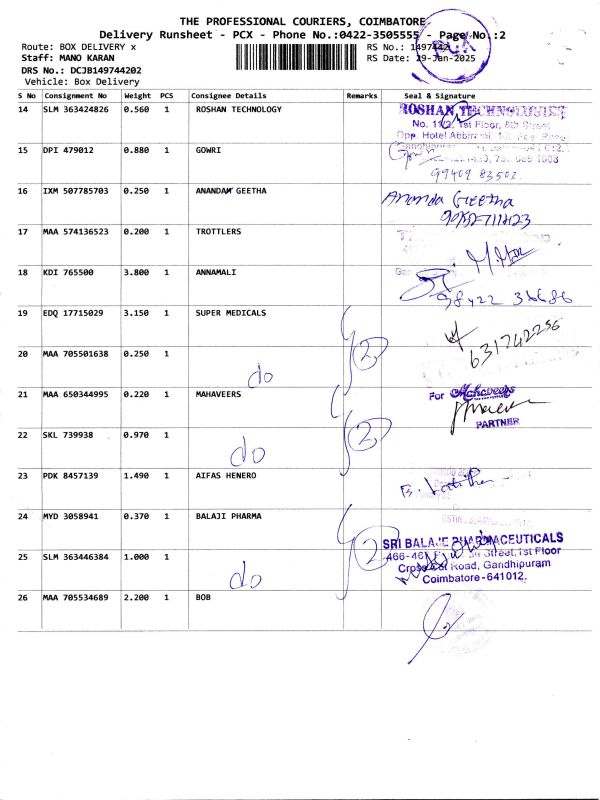 THE PROFESSIONAL COURIERS, COIMBATORE.
Delivery Runsheet - PCX - Phone No.:0422-3505555 - Page No.:2
Route: BOX DELIVERY x RS No.: 1497442
Staff: MANO KARAN RS Date: 29-Jan-2025
DRS No.: DCJB149744202
Vehicle: Box Delivery
PCX
S No Consignment No Weight PCS Consignee Details Remarks Seal & Signature
14 SLM 363424826 0.560 1 ROSHAN TECHNOLOGY ROSHAN TECHNOLOGIES
No. 11/2, 1st Floor, 8th Street
Opp. Hotel
15 DPI 479012 0.880 1 GOWRI
99409 83502
16 IXM 507785703 0.250 1 ANANDAM GEETHA Ananda Geetha
17 MAA 574136523 0.200 1 TROTTLERS
18 KDI 765500 3.800 1 ANNAMALI
98422 36686
19 EDQ 17715029 3.150 1 SUPER MEDICALS
631742256
20 MAA 705501638 0.250 1 do 2
21 MAA 650344995 0.220 1 MAHAVEERS For Mahaveers
PARTNER
22 SKL 739938 0.970 1 do 2
23 PDK 8457139 1.490 1 AIFAS HENERO
24 MYD 3058941 0.370 1 BALAJI PHARMA
SRI BALAJE PHARMACEUTICALS
25 SLM 363446384 1.000 1 do 2 Street, 1st Floor
Cross Cut Road, Gandhipuram
Coimbatore-641012.
26 MAA 705534689 2.200 1 BOB